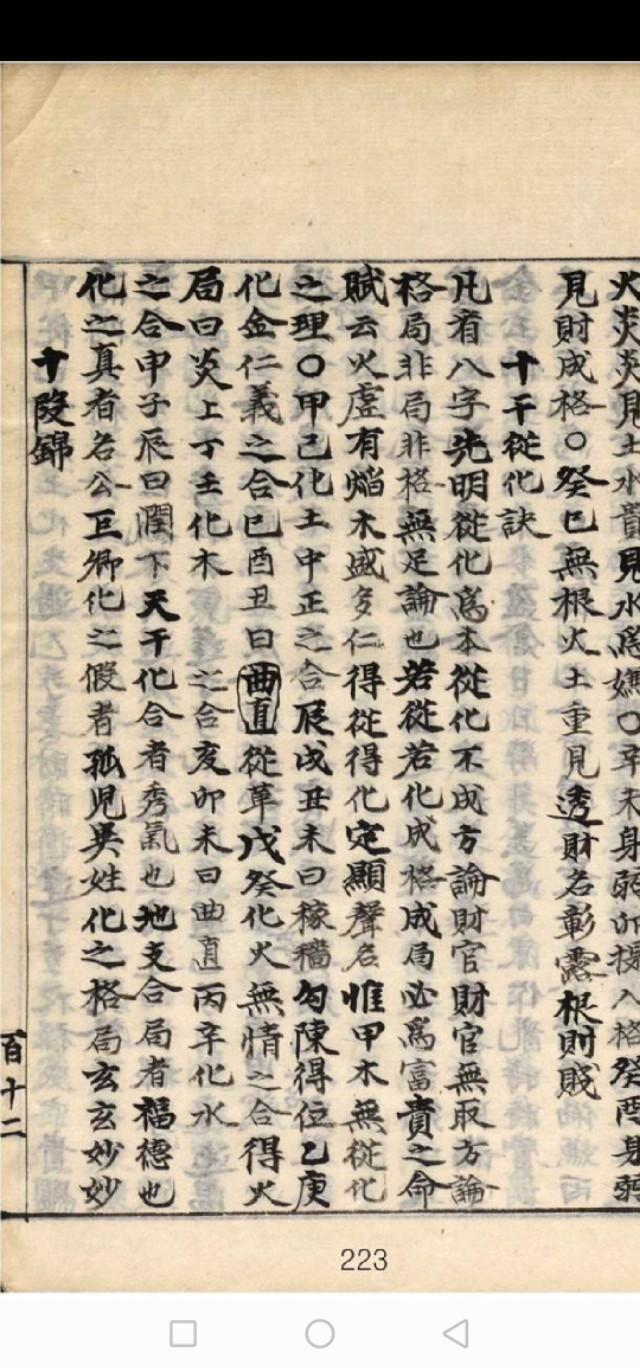 火炎炎見土水
見水爲
辛未身弱卯提入格癸酉身弱
見財成格〇癸巳無根火土重見透財名彰露根則賤
十干從化訣
凡看八字先明從化爲本從化不成方論財官財官無取方論
格局非局非格無足論也若從若化成格成局必爲富貴之命
賦云火虛有焰木盛多仁得從得化定顯聲名惟甲木無從化
之理〇甲己化土中正之合辰戌丑未曰稼穡勾陳得位乙庚
化金仁義之合巳酉丑曰曲直從革戊癸化火無情之合得火
局曰炎上丁壬化木 之合亥卯未曰曲直丙辛化水
之合申子辰曰潤下天干化合者秀氣也地支合局者福德也
化之真者名公巨卿化之假者孤児異姓化之格局玄玄妙妙
十段錦
百十二
223